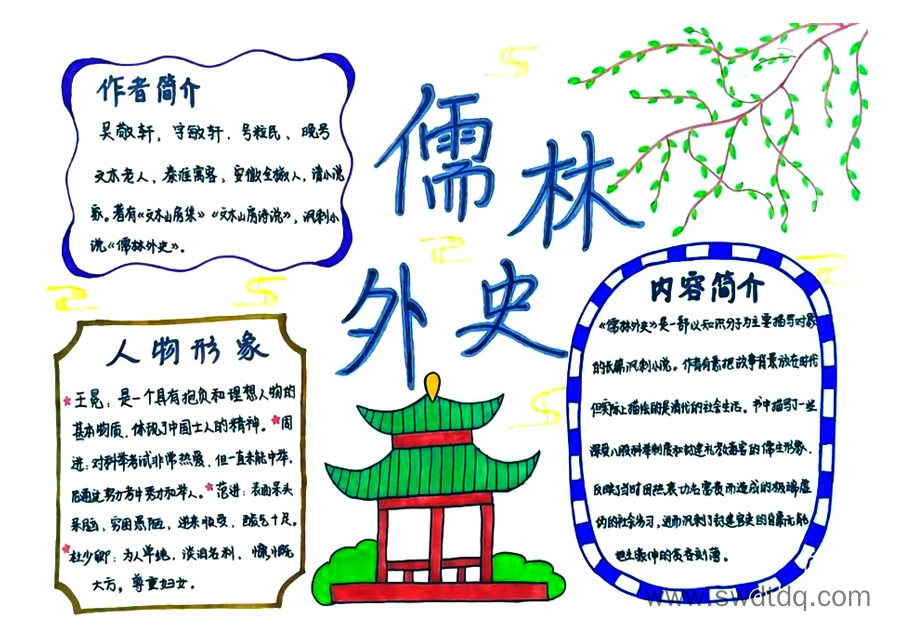 作者简介
吴敬轩，字敏轩．号粒民、晚号
文木老人，秦淮寓客，安徽全椒人，清小说
家。著有《文木山房集》《文木山房诗说》，讽刺小
说《儒林外史》。
儒林
外史
人物形象
王冕：是一个具有抱负和理想人物的
基本物质，体现了中国士人的精神。周
进：对科举考试非常热爱，但一直未能中举，
后通过努力考中秀才和举人。范进：表面呆头
呆脑，穷困愚脑，逆来忍受，酸气十足。
杜少卿：为人单纯，淡泊名利，慷慨
大方，尊重妇女。
内容简介
《儒林外史》是一部以知识分子为主要描写对象
的长篇讽刺小说。作者有意把故事背景放在时代
但实际上描绘的是清代的社会生活。书中描写了一些
深受八股科举制度和封建礼教毒害的儒生形象．
反映了当时因热衷功名富贵而造成的极端虚
伪的社会步习，进而讽刺了封建官吏的昏庸无能
地主豪绅的贪吝刻薄。
www.swdtdq.com